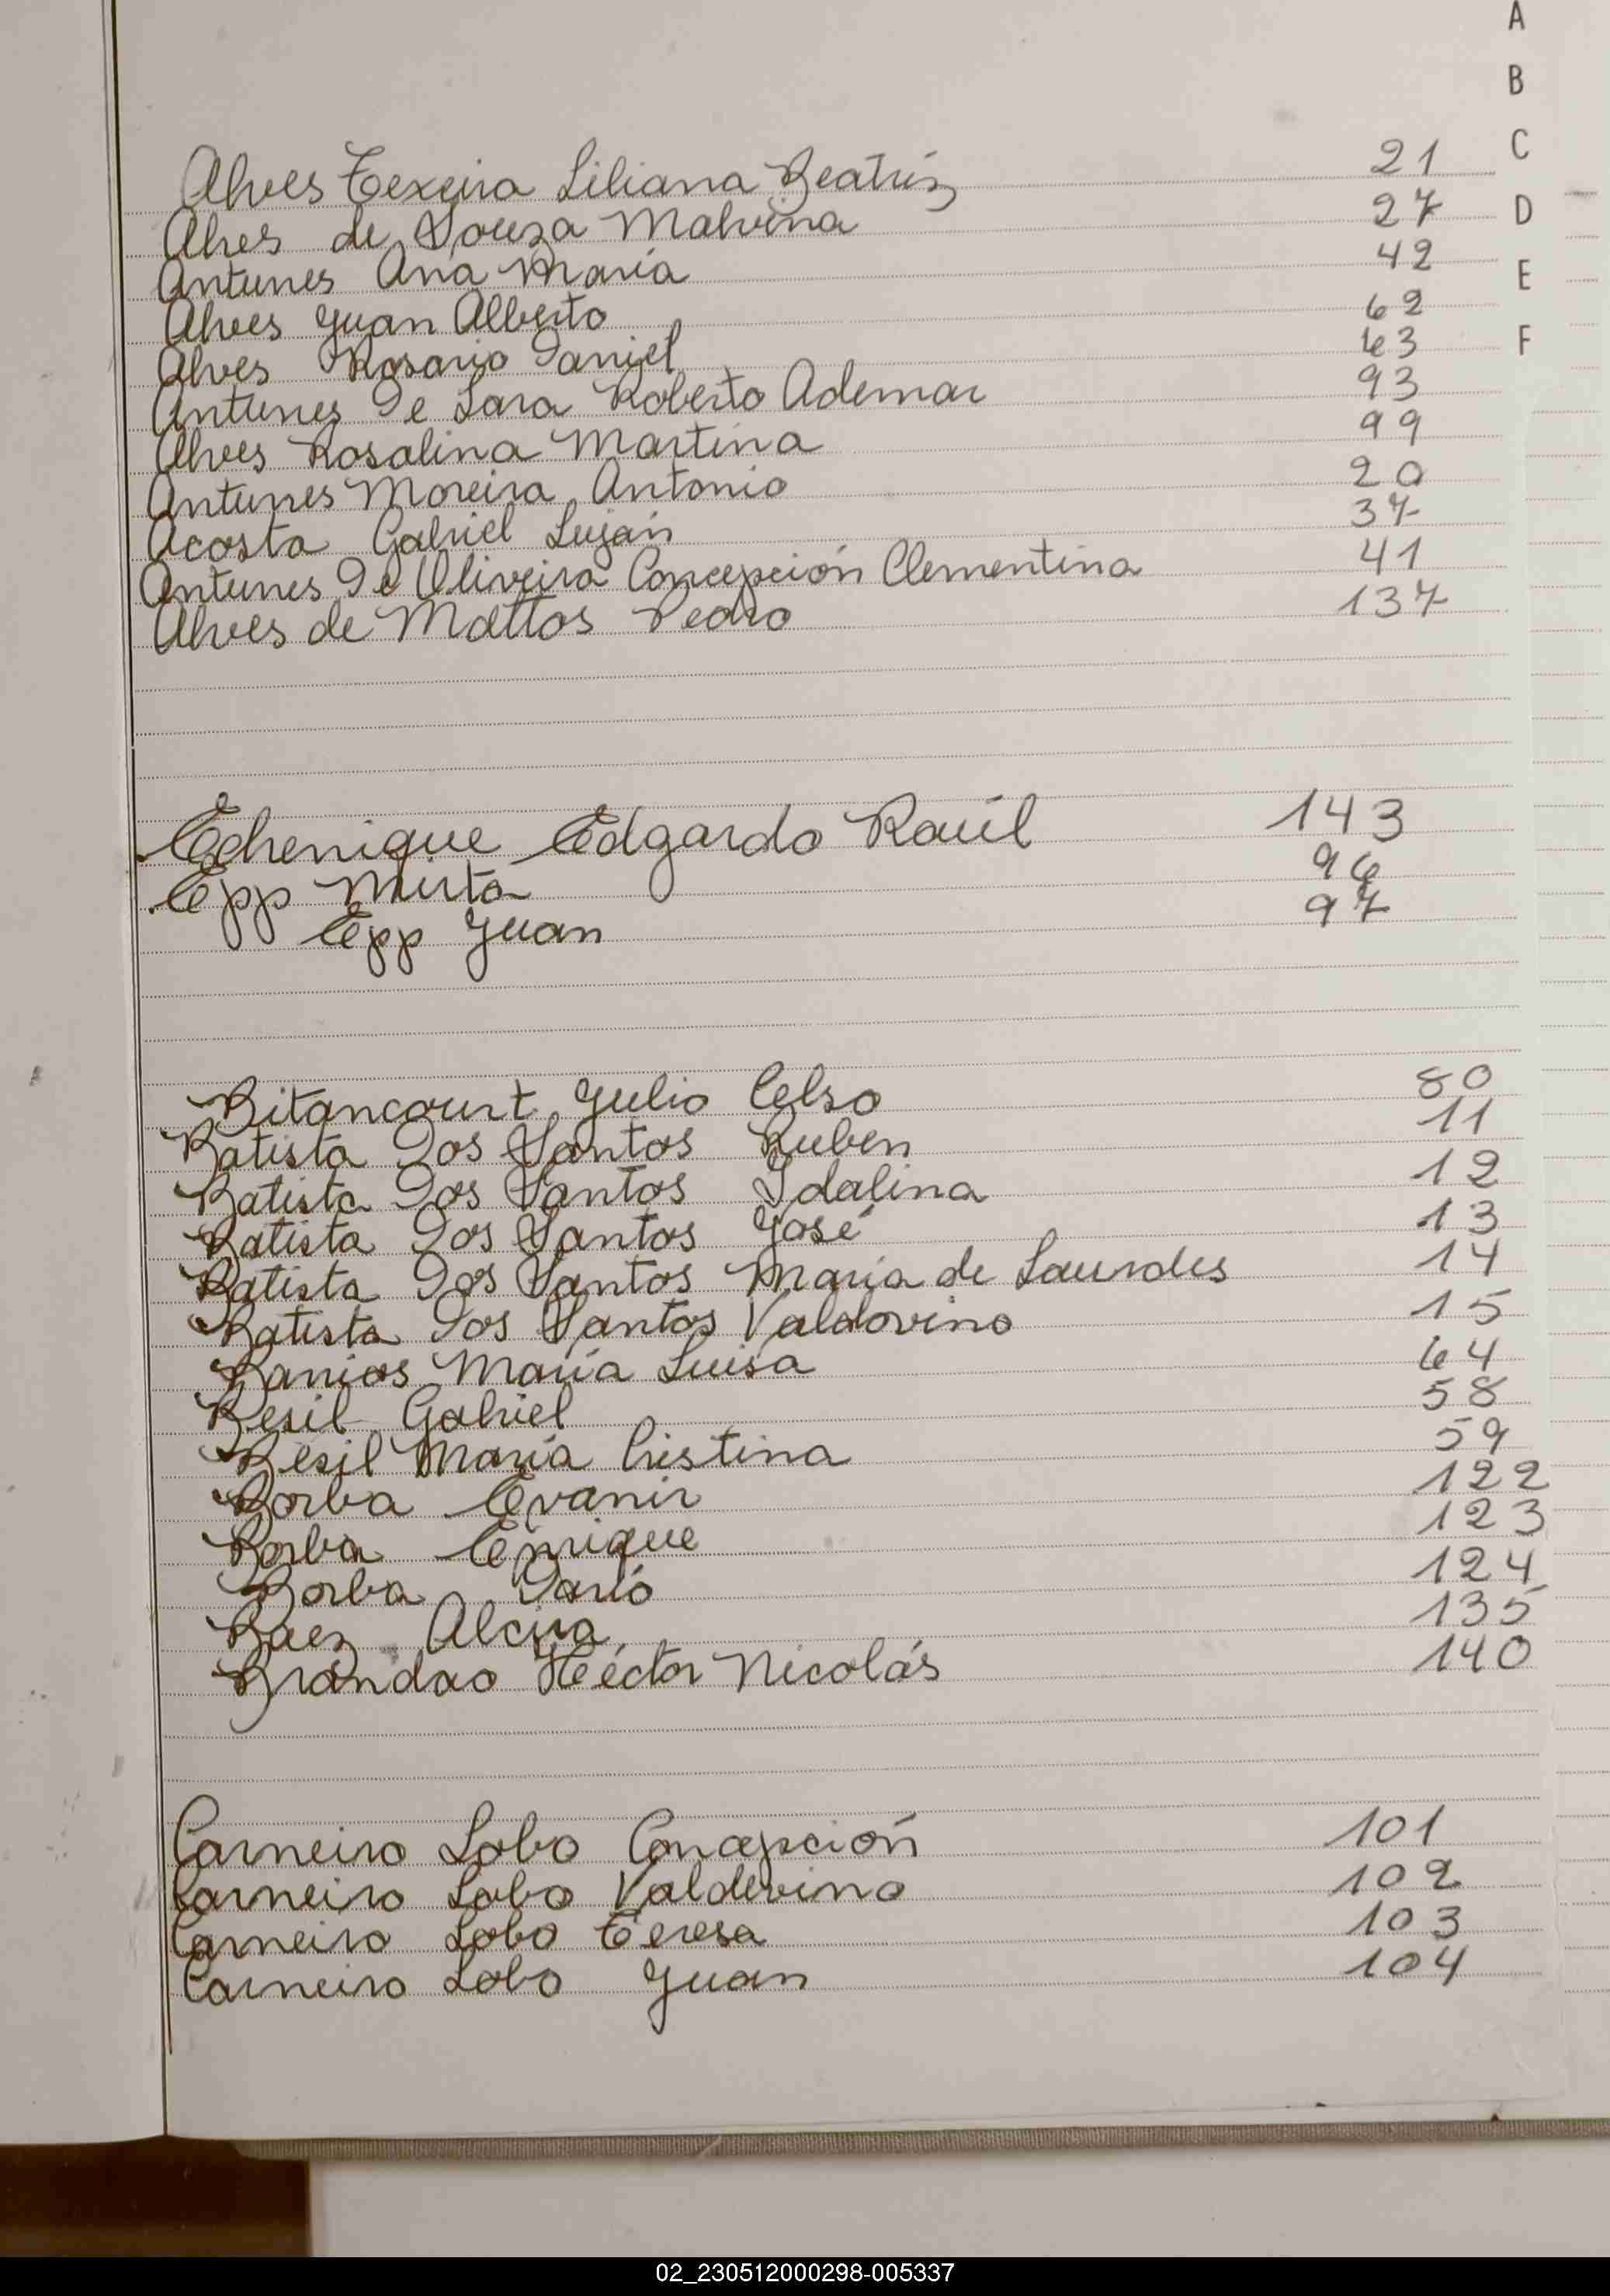 A
B
C
D
E
F
Alves Texeira Liliana Beatriz 21
Alves de Souza Malvina 27
Antunes Ana María 42
Alves Juan Alberto 62
Alves Rosario Daniel 63
Antunes De Lara Roberto Ademar 93
Alves Rosalina Martina 99
Antunes Moreira Antonio 20
Acosta Gabriel Luján 37
Antunes De Oliveira Concepción Clementina 41
Alves de Mattos Pedro 137
Echenique Edgardo Raúl 143
Epp Mirta 96
Epp Juan 97
Bitancourt Julio Celso 80
Batista Dos Santos Ruben 11
Batista Dos Santos Idalina 12
Batista Dos Santos José 13
Batista Dos Santos María de Lourdes 14
Batista Dos Santos Valdovino 15
Banios María Luisa 64
Besil Gabriel 58
Besil María Cristina 59
Borba Evanir 122
Borba Enrique 123
Borba Darío 124
Baez Alcira 135
Brandao Héctor Nicolás 140
Carneiro Lobo Concepción 101
Carneiro Lobo Valdevino 102
Carneiro Lobo Teresa 103
Carneiro Lobo Juan 104
02_230512000298-005337